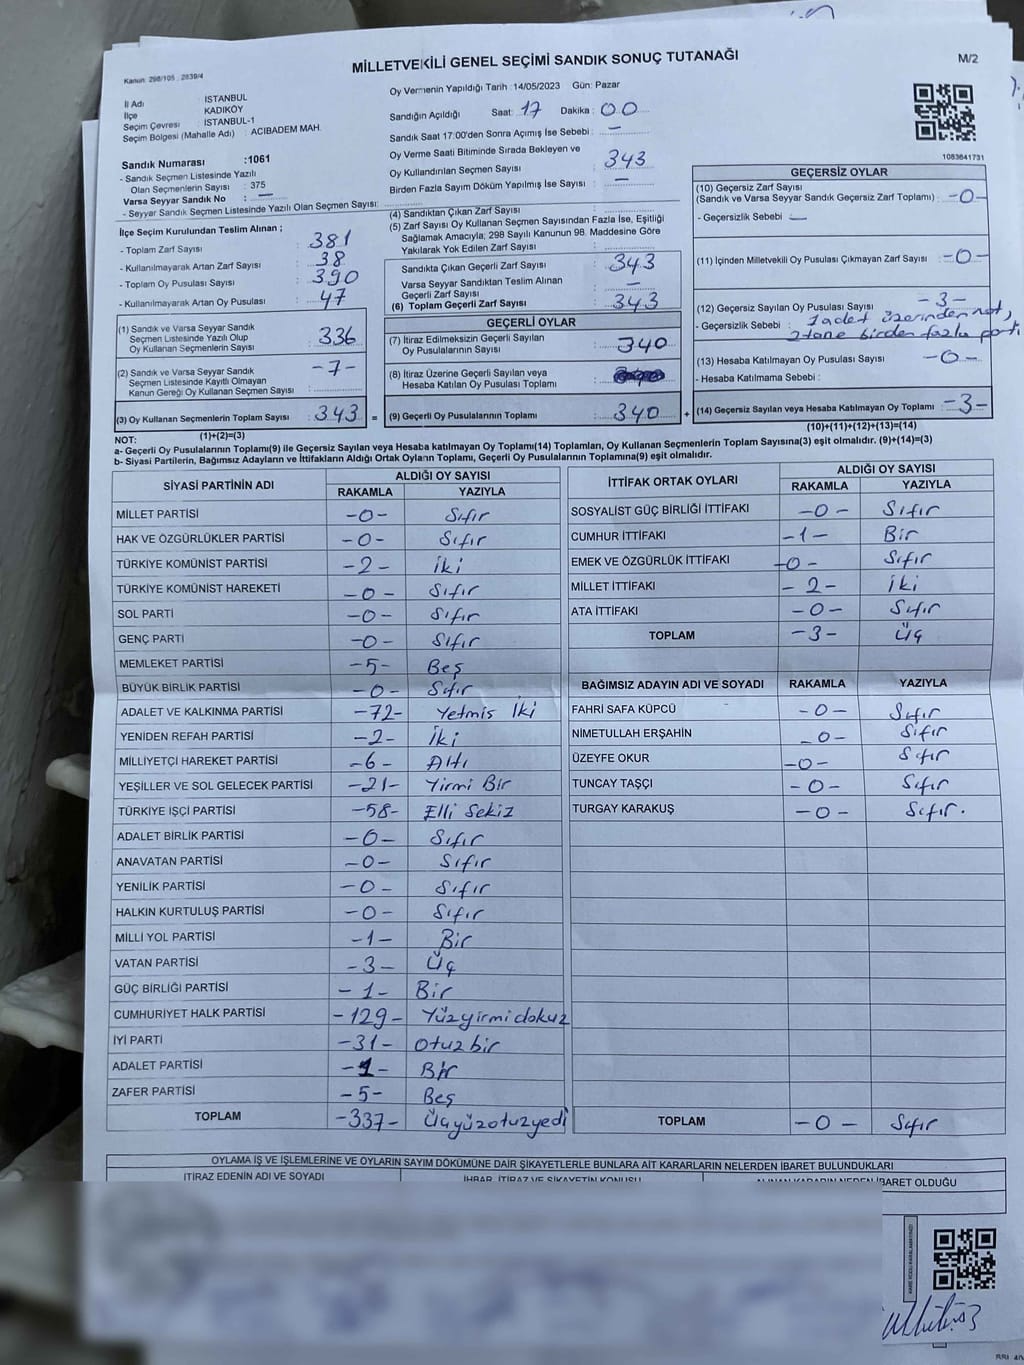 MİLLETVEKİLİ GENEL SEÇİMİ SANDIK SONUÇ TUTANAĞI
M/2
Kanun: 298/105 ; 2839/4
İl Adı : İSTANBUL
İlçe : KADIKÖY
Seçim Çevresi : İSTANBUL-1
Seçim Bölgesi (Mahalle Adı) : ACIBADEM MAH.
Sandık Numarası :1061
- Sandık Seçmen Listesinde Yazılı
Olan Seçmenlerin Sayısı : 375
Varsa Seyyar Sandık No : —
- Seyyar Sandık Seçmen Listesinde Yazılı Olan Seçmen Sayısı:
Oy Vermenin Yapıldığı Tarih :14/05/2023 Gün: Pazar
Sandığın Açıldığı Saat: 17 Dakika : 00
Sandık Saat 17:00'den Sonra Açımış İse Sebebi : —
Oy Verme Saati Bitiminde Sırada Bekleyen ve
Oy Kullandırılan Seçmen Sayısı : 343
Birden Fazla Sayım Döküm Yapılmış İse Sayısı : —
1083641731
İlçe Seçim Kurulundan Teslim Alınan ;
- Toplam Zarf Sayısı : 381
- Kullanılmayarak Artan Zarf Sayısı : 38
- Toplam Oy Pusulası Sayısı : 390
- Kullanılmayarak Artan Oy Pusulası : 47
(1) Sandık ve Varsa Seyyar Sandık
Seçmen Listesinde Yazılı Olup
Oy Kullanan Seçmenlerin Sayısı : 336
(2) Sandık ve Varsa Seyyar Sandık
Seçmen Listesinde Kayıtlı Olmayan
Kanun Gereği Oy Kullanan Seçmen Sayısı : -7-
(3) Oy Kullanan Seçmenlerin Toplam Sayısı : 343 =
(1)+(2)=(3)
(4) Sandıktan Çıkan Zarf Sayısı :
(5) Zarf Sayısı Oy Kullanan Seçmen Sayısından Fazla İse, Eşitliği
Sağlamak Amacıyla; 298 Sayılı Kanunun 98. Maddesine Göre
Yakılarak Yok Edilen Zarf Sayısı :
Sandıkta Çıkan Geçerli Zarf Sayısı : 343
Varsa Seyyar Sandıktan Teslim Alınan
Geçerli Zarf Sayısı : —
(6) Toplam Geçerli Zarf Sayısı : 343
GEÇERLİ OYLAR
(7) İtiraz Edilmeksizin Geçerli Sayılan
Oy Pusulalarının Sayısı : 340
(8) İtiraz Üzerine Geçerli Sayılan veya
Hesaba Katılan Oy Pusulası Toplamı :
(9) Geçerli Oy Pusulalarının Toplamı : 340 +
GEÇERSİZ OYLAR
(10) Geçersiz Zarf Sayısı
(Sandık ve Varsa Seyyar Sandık Geçersiz Zarf Toplamı) : -0-
- Geçersizlik Sebebi : —
(11) İçinden Milletvekili Oy Pusulası Çıkmayan Zarf Sayısı : -0-
(12) Geçersiz Sayılan Oy Pusulası Sayısı : -3-
- Geçersizlik Sebebi : 1 adet üzerinden not,
2 tane birden fazla parti
(13) Hesaba Katılmayan Oy Pusulası Sayısı : -0-
- Hesaba Katılmama Sebebi :
(14) Geçersiz Sayılan veya Hesaba Katılmayan Oy Toplamı : -3-
(10)+(11)+(12)+(13)=(14)
NOT:
a- Geçerli Oy Pusulalarının Toplamı(9) ile Geçersiz Sayılan veya Hesaba katılmayan Oy Toplamı(14) Toplamları, Oy Kullanan Seçmenlerin Toplam Sayısına(3) eşit olmalıdır. (9)+(14)=(3)
b- Siyasi Partilerin, Bağımsız Adayların ve İttifakların Aldığı Ortak Oyların Toplamı, Geçerli Oy Pusulalarının Toplamına(9) eşit olmalıdır.
SİYASİ PARTİNİN ADI ALDIĞI OY SAYISI
RAKAMLA YAZIYLA
MİLLET PARTİSİ -0- Sıfır
HAK VE ÖZGÜRLÜKLER PARTİSİ -0- Sıfır
TÜRKİYE KOMÜNİST PARTİSİ -2- İki
TÜRKİYE KOMÜNİST HAREKETİ -0- Sıfır
SOL PARTİ -0- Sıfır
GENÇ PARTİ -0- Sıfır
MEMLEKET PARTİSİ -5- Beş
BÜYÜK BİRLİK PARTİSİ -0- Sıfır
ADALET VE KALKINMA PARTİSİ -72- Yetmis İki
YENİDEN REFAH PARTİSİ -2- İki
MİLLİYETÇİ HAREKET PARTİSİ -6- Altı
YEŞİLLER VE SOL GELECEK PARTİSİ -21- Yirmi Bir
TÜRKİYE İŞÇİ PARTİSİ -58- Elli Sekiz
ADALET BİRLİK PARTİSİ -0- Sıfır
ANAVATAN PARTİSİ -0- Sıfır
YENİLİK PARTİSİ -0- Sıfır
HALKIN KURTULUŞ PARTİSİ -0- Sıfır
MİLLİ YOL PARTİSİ -1- Bir
VATAN PARTİSİ -3- Üç
GÜÇ BİRLİĞİ PARTİSİ -1- Bir
CUMHURİYET HALK PARTİSİ -129- Yüzyirmidokuz
İYİ PARTİ -31- Otuzbir
ADALET PARTİSİ -1- Bir
ZAFER PARTİSİ -5- Beş
TOPLAM -337- Üçyüzotuzyedi
İTTİFAK ORTAK OYLARI ALDIĞI OY SAYISI
RAKAMLA YAZIYLA
SOSYALİST GÜÇ BİRLİĞİ İTTİFAKI -0- Sıfır
CUMHUR İTTİFAKI -1- Bir
EMEK VE ÖZGÜRLÜK İTTİFAKI -0- Sıfır
MİLLET İTTİFAKI -2- İki
ATA İTTİFAKI -0- Sıfır
TOPLAM -3- Üç
BAĞIMSIZ ADAYIN ADI VE SOYADI RAKAMLA YAZIYLA
FAHRİ SAFA KÜPCÜ -0- Sıfır
NİMETULLAH ERŞAHİN -0- Sıfır
ÜZEYFE OKUR -0- Sıfır
TUNCAY TAŞÇI -0- Sıfır
TURGAY KARAKUŞ -0- Sıfır.
TOPLAM -0- Sıfır
OYLAMA İŞ VE İŞLEMLERİNE VE OYLARIN SAYIM DÖKÜMÜNE DAİR ŞİKAYETLERLE BUNLARA AİT KARARLARIN NELERDEN İBARET BULUNDUKLARI
İTİRAZ EDENİN ADI VE SOYADI İHBAR, İTİRAZ VE ŞİKAYETİN KONUSU ALINAN KARARIN NEDEN İBARET OLDUĞU